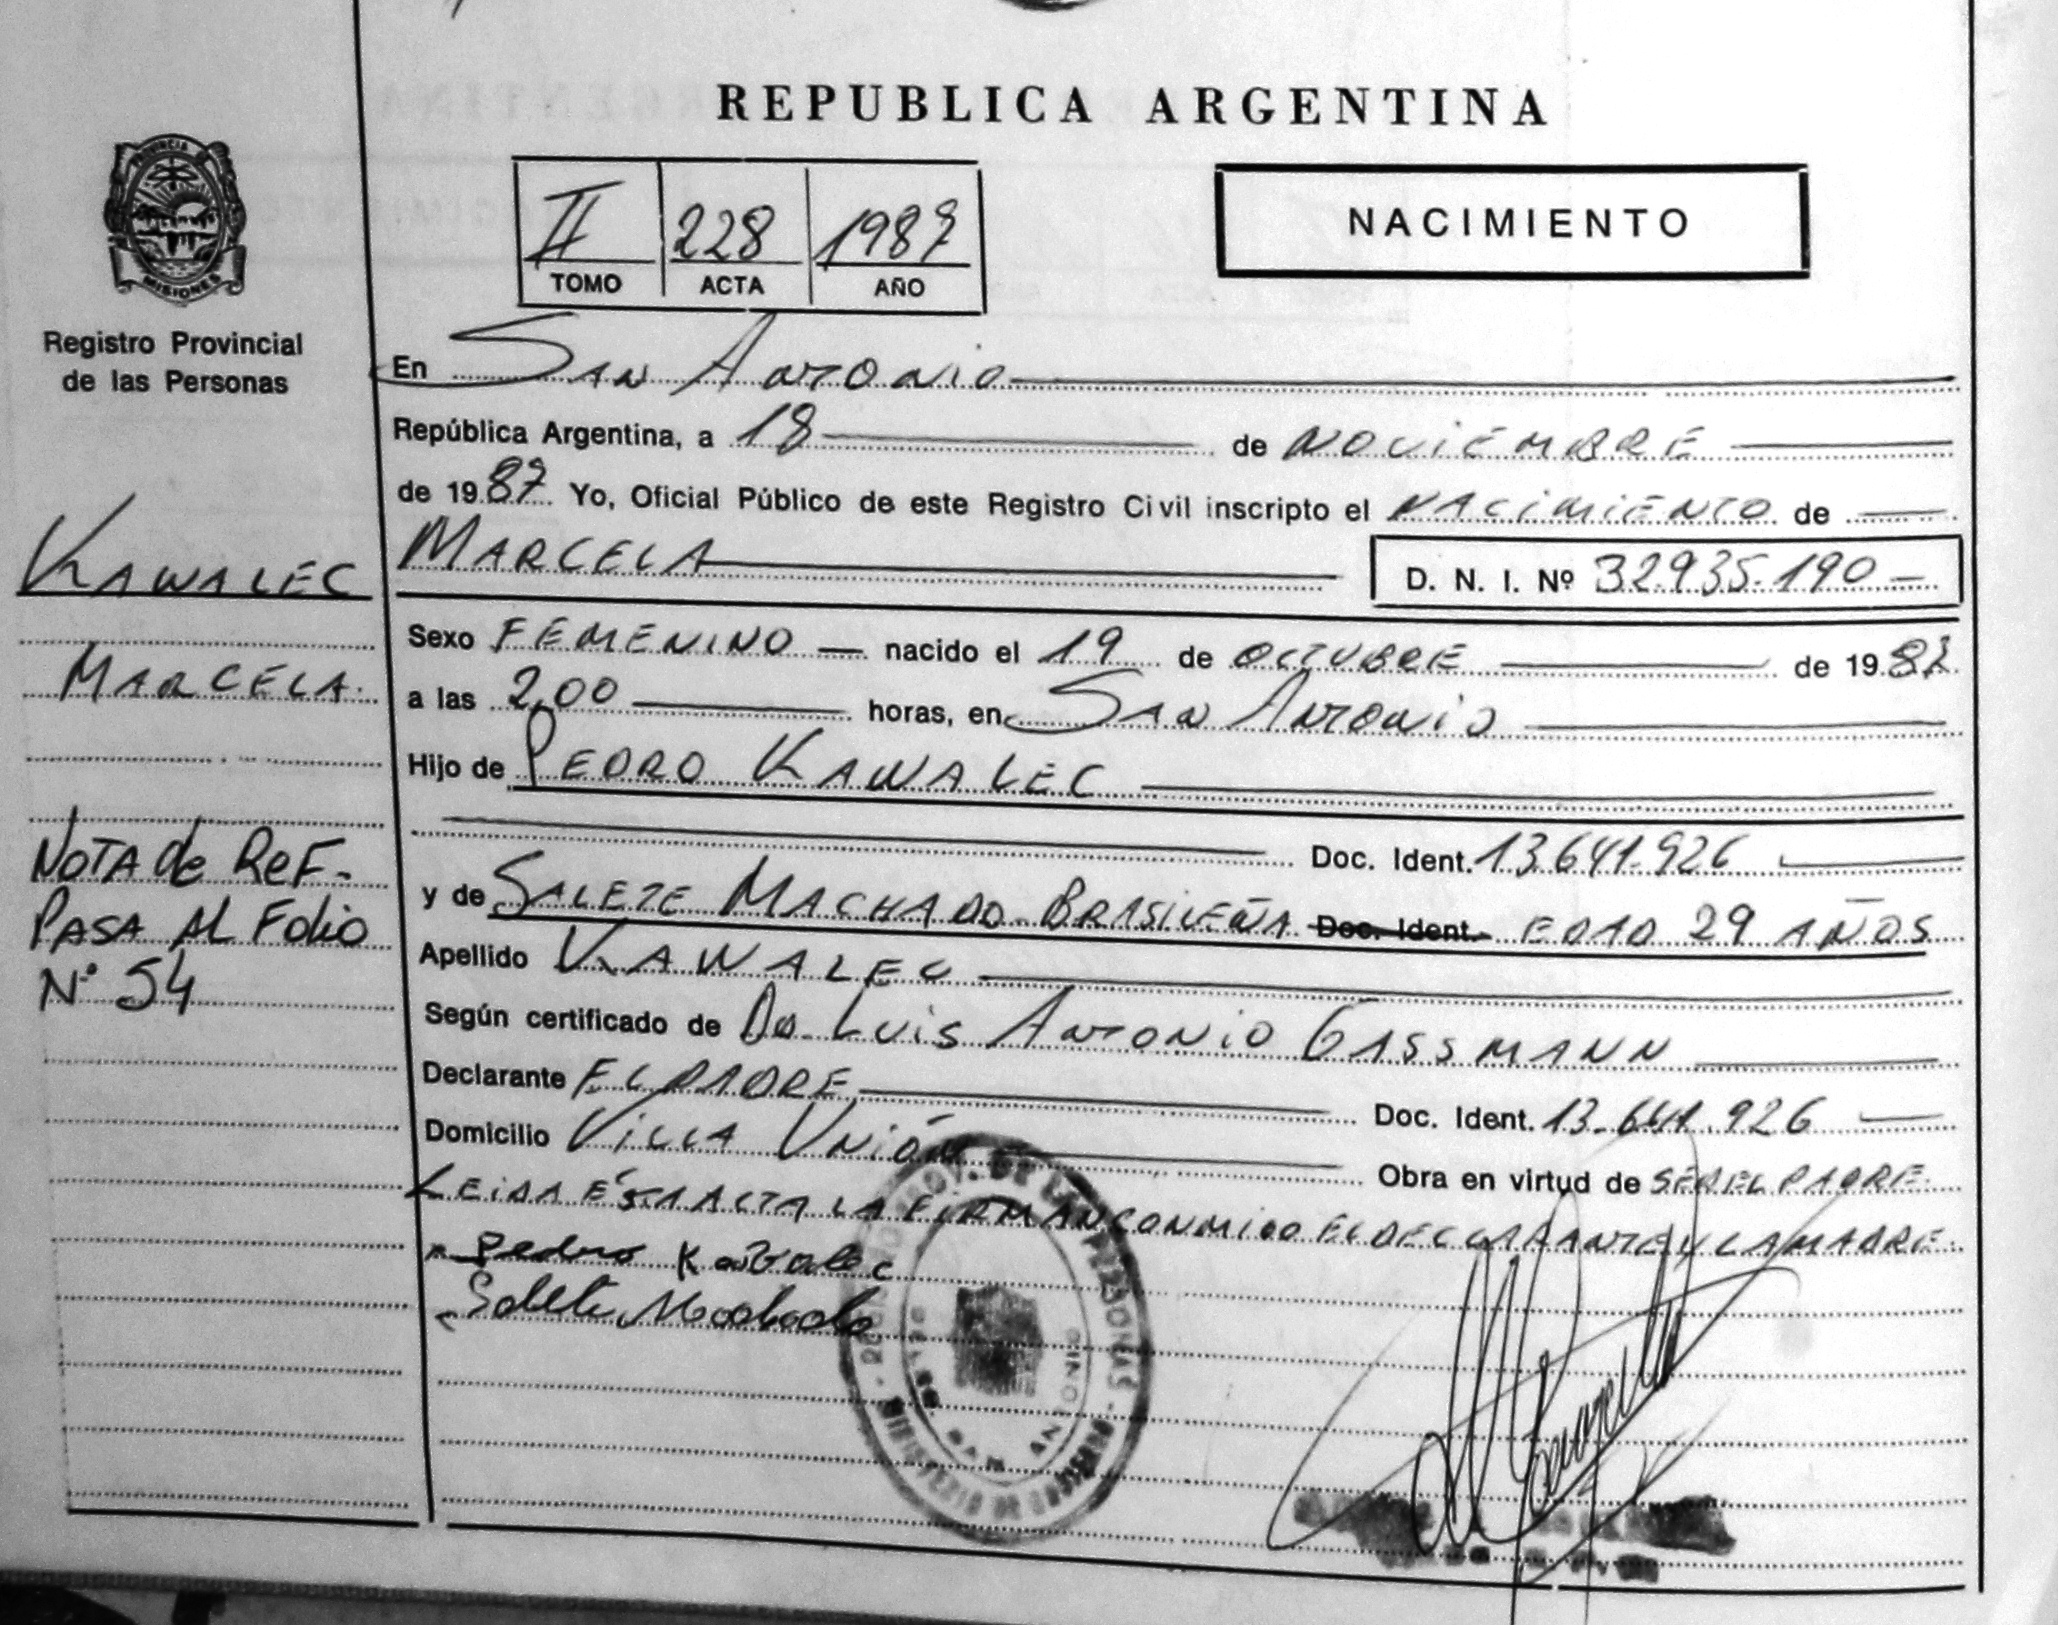 REPUBLICA ARGENTINA
PROVINCIA DE
MISIONES
Registro Provincial
de las Personas
II 228 1987
TOMO ACTA AÑO
NACIMIENTO
En San Antonio
República Argentina, a 18 de NOVIEMBRE
de 1987 Yo, Oficial Público de este Registro Civil inscripto el NACIMIENTO de
MARCELA D. N. I. Nº 32.935.190
Sexo FEMENINO nacido el 19 de OCTUBRE de 1987
a las 2,00 horas, en San Antonio
Hijo de PEDRO KAWALEC
Doc. Ident. 13.641.926
y de SALETE MACHADO-BRASILEÑA Doc. Ident. EDAD 29 AÑOS
Apellido KAWALEC
Según certificado de Dr. Luis Antonio GASSMANN
Declarante EL PADRE Doc. Ident. 13.641.926
Domicilio Villa Unión Obra en virtud de SER EL PADRE
LEIDA ÉSTA ACTA LA FIRMAN CONMIGO EL DECLARANTE Y LA MADRE.
Pedro Kawalec
Salete Machado
KAWALEC
MARCELA
NOTA de REF-
PASA AL Folio
N° 54